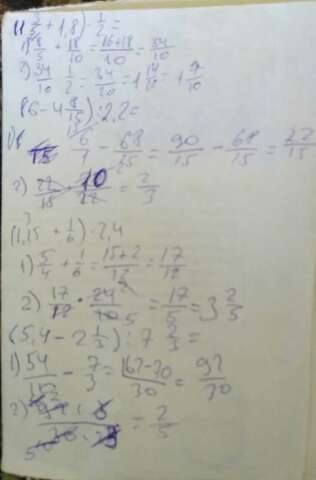 (1 3/5 + 1,8) · 1/2 =
1) 8/5 + 18/10 = 16+18/10 = 34/10
2) 34/10 · 1/2 = 34/20 = 1 14/20 = 1 7/10
(6 - 4 8/15) : 2,2 =
1) 6/1 - 68/15 = 90/15 - 68/15 = 22/15
2) 22/15 · 10/22 = 2/3
(1,25 + 1/6) · 2,4
1) 5/4 + 1/6 = 15+2/12 = 17/12
2) 17/12 · 24/10 5 = 17/5 = 3 2/5
(5,4 - 2 1/3) : 7 2/3 =
1) 54/10 - 7/3 = 162-70/30 = 92/30
2) = 2/5